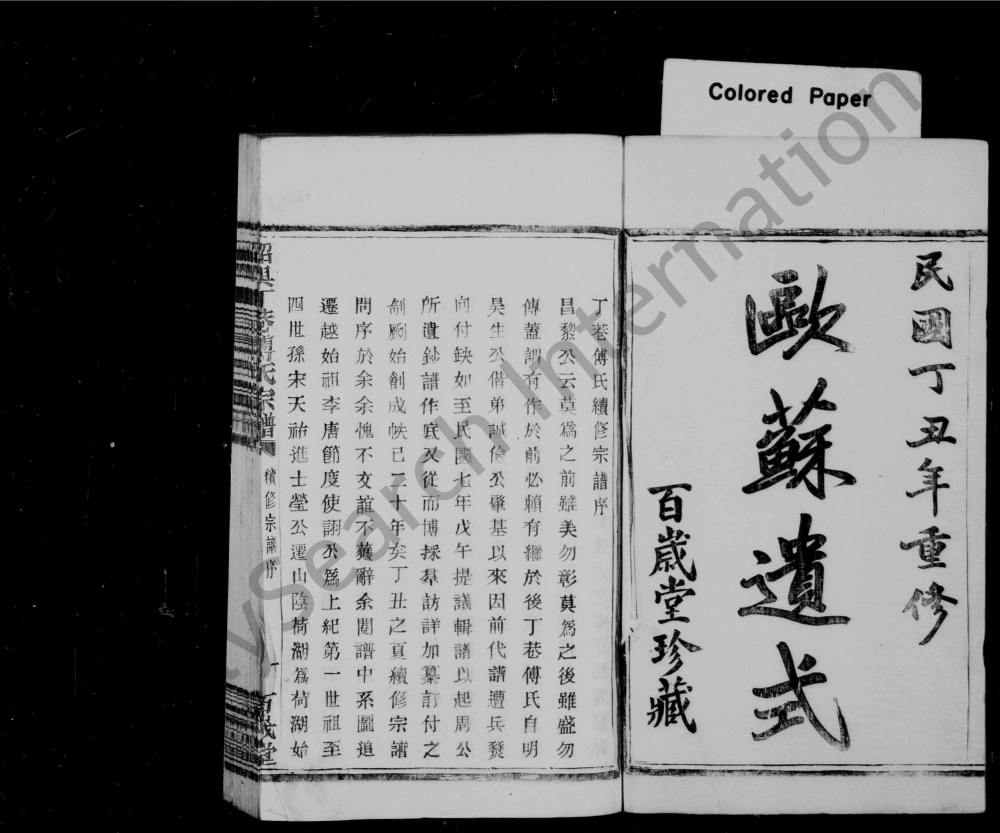 Colored Paper
民國丁丑年重修
歐蘇遺式
百歲堂珍藏
丁巷傅氏續修宗譜序
昌黎公云莫爲之前雖美勿彰莫爲之後雖盛勿
傳蓋謂有作於前必賴有繼於後丁巷傅氏自明
昊生公偕弟誠倫公肇基以來因前代譜遭兵燹
向付缺如至民國七年戊午提議輯譜以起周公
所遺鈔譜作底又從而博採羣訪詳加纂訂付之
剞劂始創成帙已二十年矣丁丑之夏續修宗譜
問序於余余愧不文誼不獲辭余閱譜中系圖追
遷越始祖李唐節度使詡公爲上紀第一世祖至
四世孫宋天祐進士瑩公遷山陰荷湖爲荷湖始
紹興丁巷傅氏宗譜 續修宗譜序 一 百歲堂
MySearch International